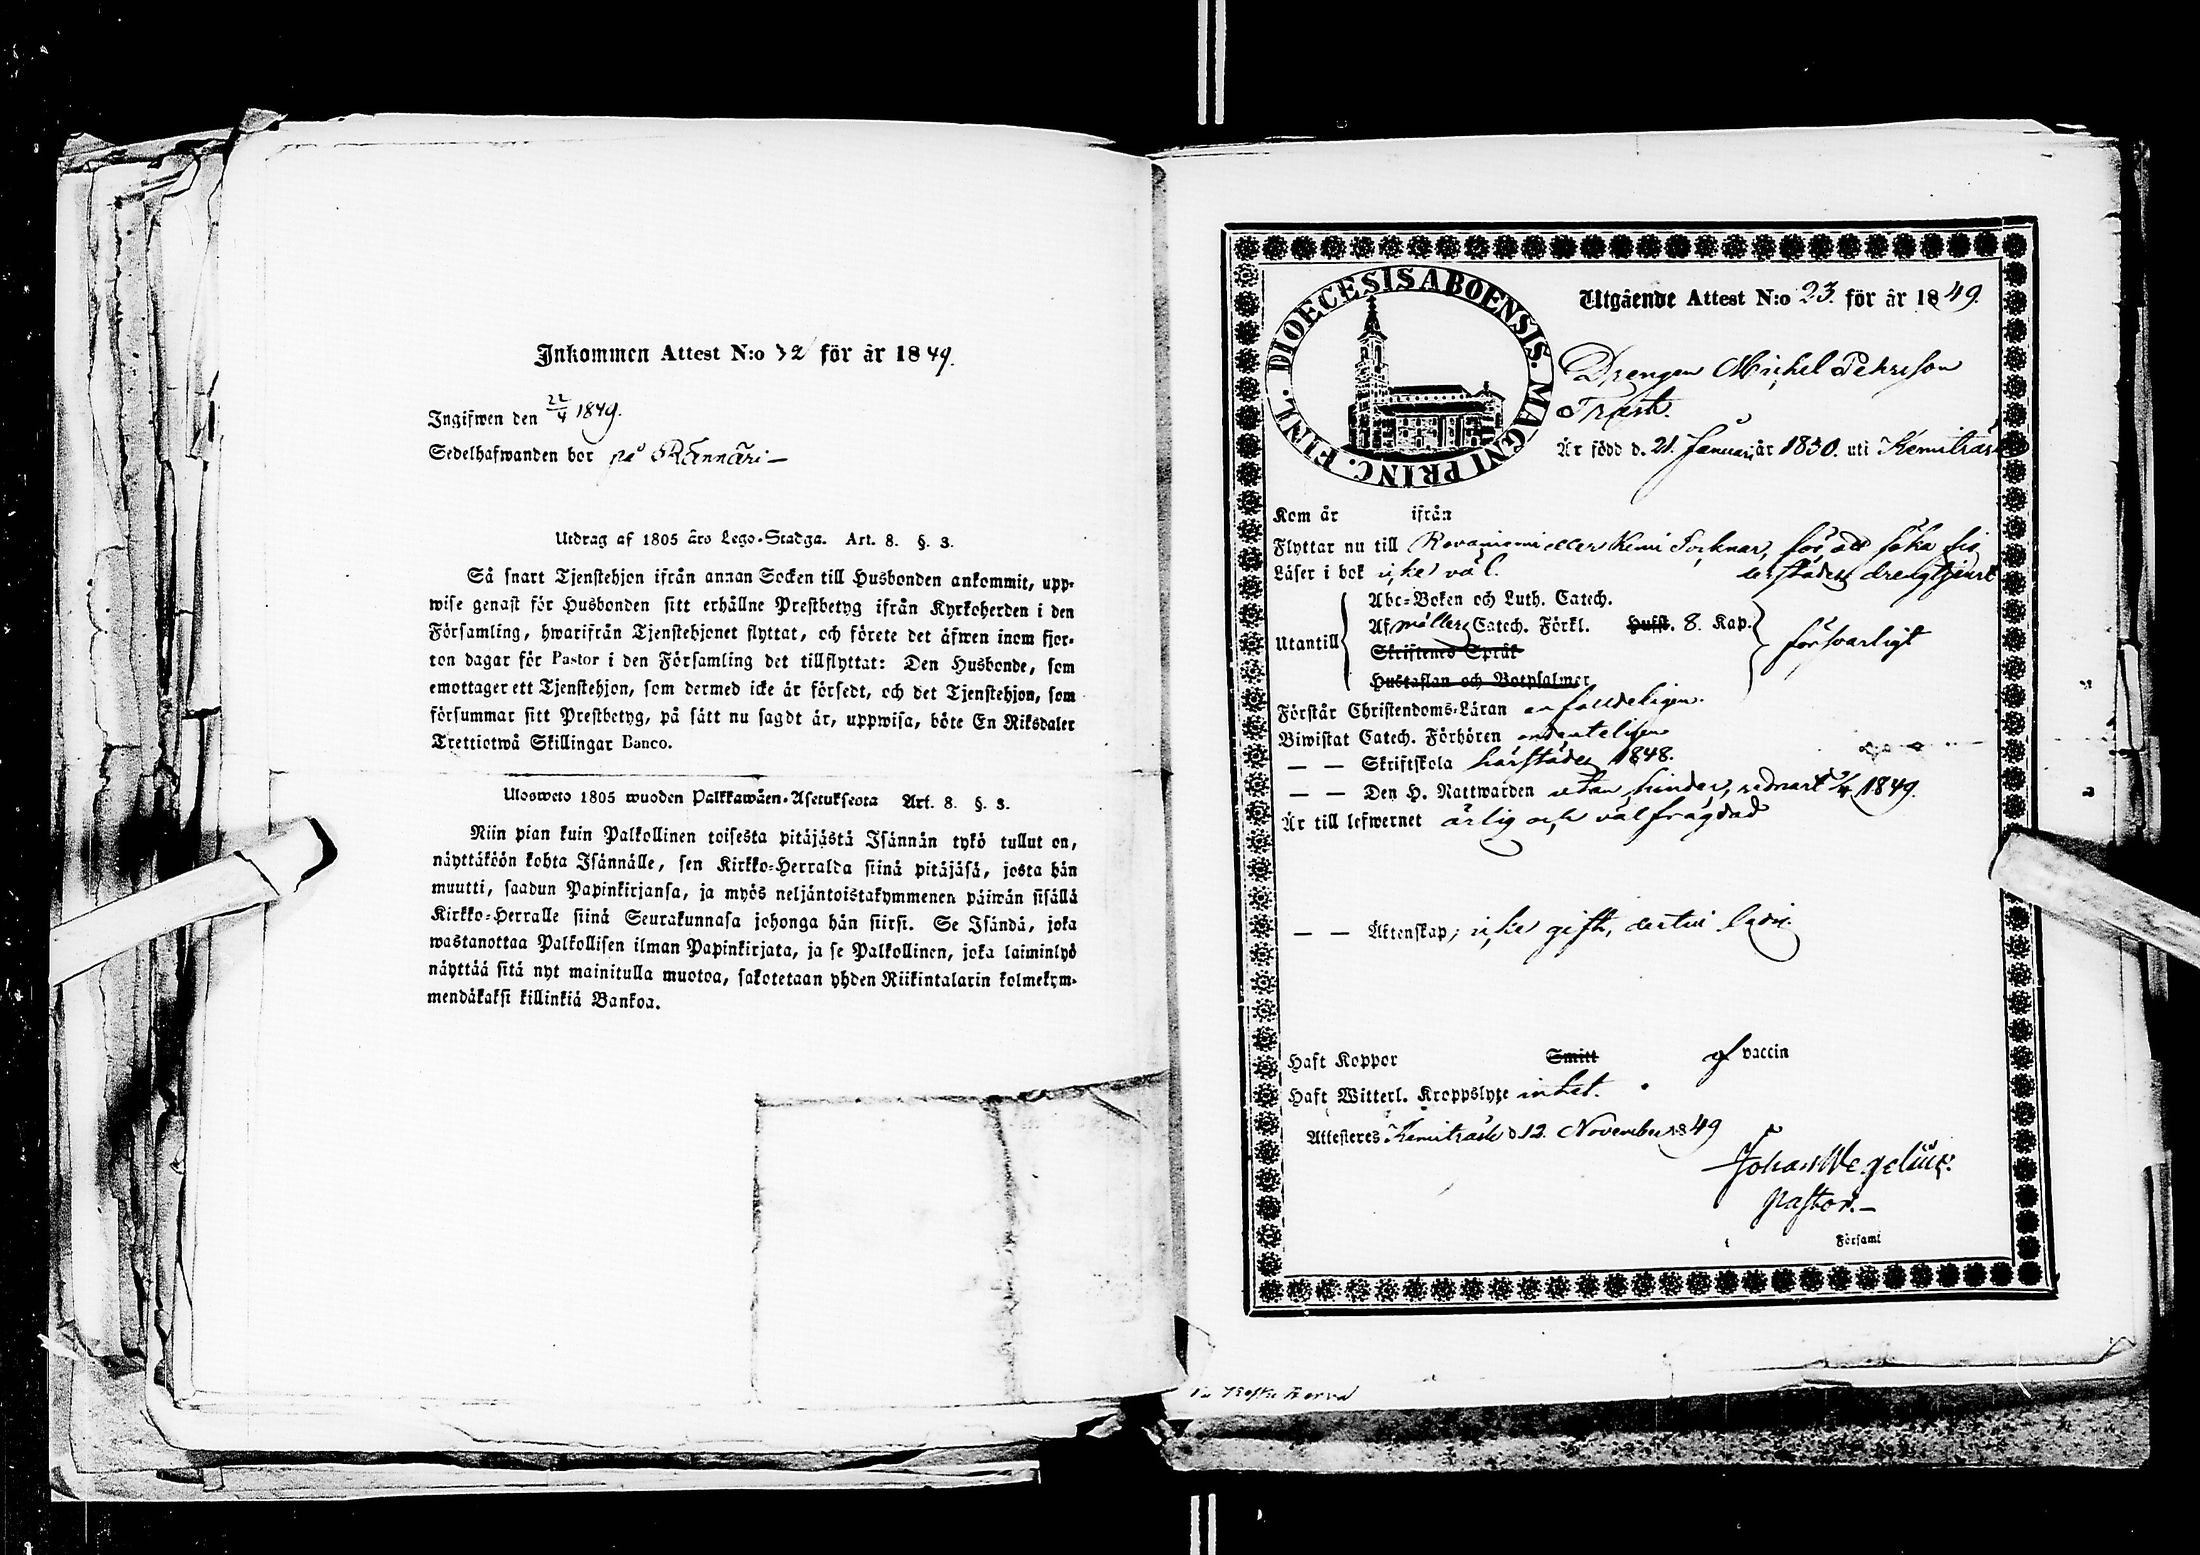 Inkommen Attest N:o 32 för år 1849.
Ingifwen den 22/4 1849.
Sedelhafwanden bor på Rännäri —
Utdrag af 1805 års Lego-Stadga. Art. 8. §. 3.
Så snart Tjenstehjon ifrån annan Socken till Husbonden ankommit, upp-
wise genast för Husbonden sitt erhållne Prestbetyg ifrån Kyrkoherden i den
Församling, hwarifrån Tjenstehjonet flyttat, och förete det äfwen inom fjor-
ton dagar för Pastor i den Församling det tillflyttat: Den Husbonde, som
emottager ett Tjenstehjon, som dermed icke är försedt, och det Tjenstehjon, som
försummar sitt Prestbetyg, på sätt nu sagdt är, uppwisa, böte En Riksdaler
Trettiotwå Skillingar Banco.
Ulosweto 1805 wuoden Palkkawäen-Asetuksesta Art. 8. §. 3.
Niin pian kuin Palkollinen toisesta pitäjästä Isännän tykö tullut on,
näyttäköön kohta Isännälle, sen Kirkko-Herralda siinä pitäjäsä, josta hän
muutti, saadun Papinkirjansa, ja myös neljäntoistakymmenen päiwän sisällä
Kirkko-Herralle siinä Seurakunnasa johonga hän siirsi. Se Isändä, joka
wastanottaa Palkollisen ilman Papinkirjata, ja se Palkollinen, joka laiminlyö
näyttää sitä nyt mainitulla muotoa, sakotetaan yhden Riikintalarin kolmekym-
mendäkaksi killinkiä Bankoa.
DIOECESIS ABOENSIS. MAGNI PRINC. FINL.
Utgående Attest N:o 23. för år 1849.
Drengen Michel Pehrsson
Trast.
Är född d. 21. Januari år 1830. uti Kemiträsk
Kom år ifrån
Flyttar nu till Rovaniemi eller Kemi Socknar, för att söka sig
Läser i bok icke väl. derstädes drengtjenst
Abc-Boken och Luth. Catech.
Af möllers Catech. Förkl. Husst. 8. Kap.
Utantill försvarligt
Skriftenes Språk
Hustaflan och Botpsalmer
Förstår Christendoms-Läran enfaldeligen.
Biwistat Catech. Förhören ordenteligen
— — Skriftskola härstädes 1848.
— — Den H. Nattwarden utan hinder, sednast 1849.
Är till lefwernet ärlig och välfrägdad
— — Äktenskap; icke gift, dertill ledig
Haft Koppor Smitt af vaccin
Haft Witterl. Kroppslyte intet.
Attesteres Kemiträsk d 12. November 1849
Johan Wegelius.
Pastor. —
Församl